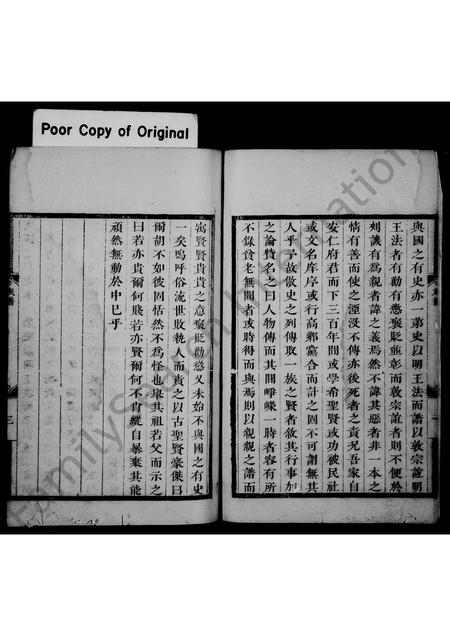 Poor Copy of Original
與國之有史亦一第史以明王法而譜以敦宗誼明
王法者有勸有懲褒貶並彰而敦宗誼者則不便於
刻譏有為親者諱之義焉然不諱其惡者非一本之
情有善而使之湮沒不傳亦後死者之責兄吾家自
安仁府君而下三百年間或學希聖賢或功被民社
或文名庠序或行高鄉黨合而計之固不可謂無其
人乎予故倣史之列傳取一族之賢者敘其行事亦
之論贊名之曰人物傳而其間崢嶸一時者容有所
不錄貧老無聞者或時得而與焉則以親親之譜而
寓賢賢貴貴之意褒貶勸懲又未始不與國之有史
一矣嗚呼俗流世敗執人而責之以古聖賢豪傑曰
爾胡不如彼固恬然不為怪也臬其祖若父而示之
曰若亦貴爾何賤若亦賢爾何不肖縱自暴棄其能
頑然無動於中巳乎
FamilySearch International